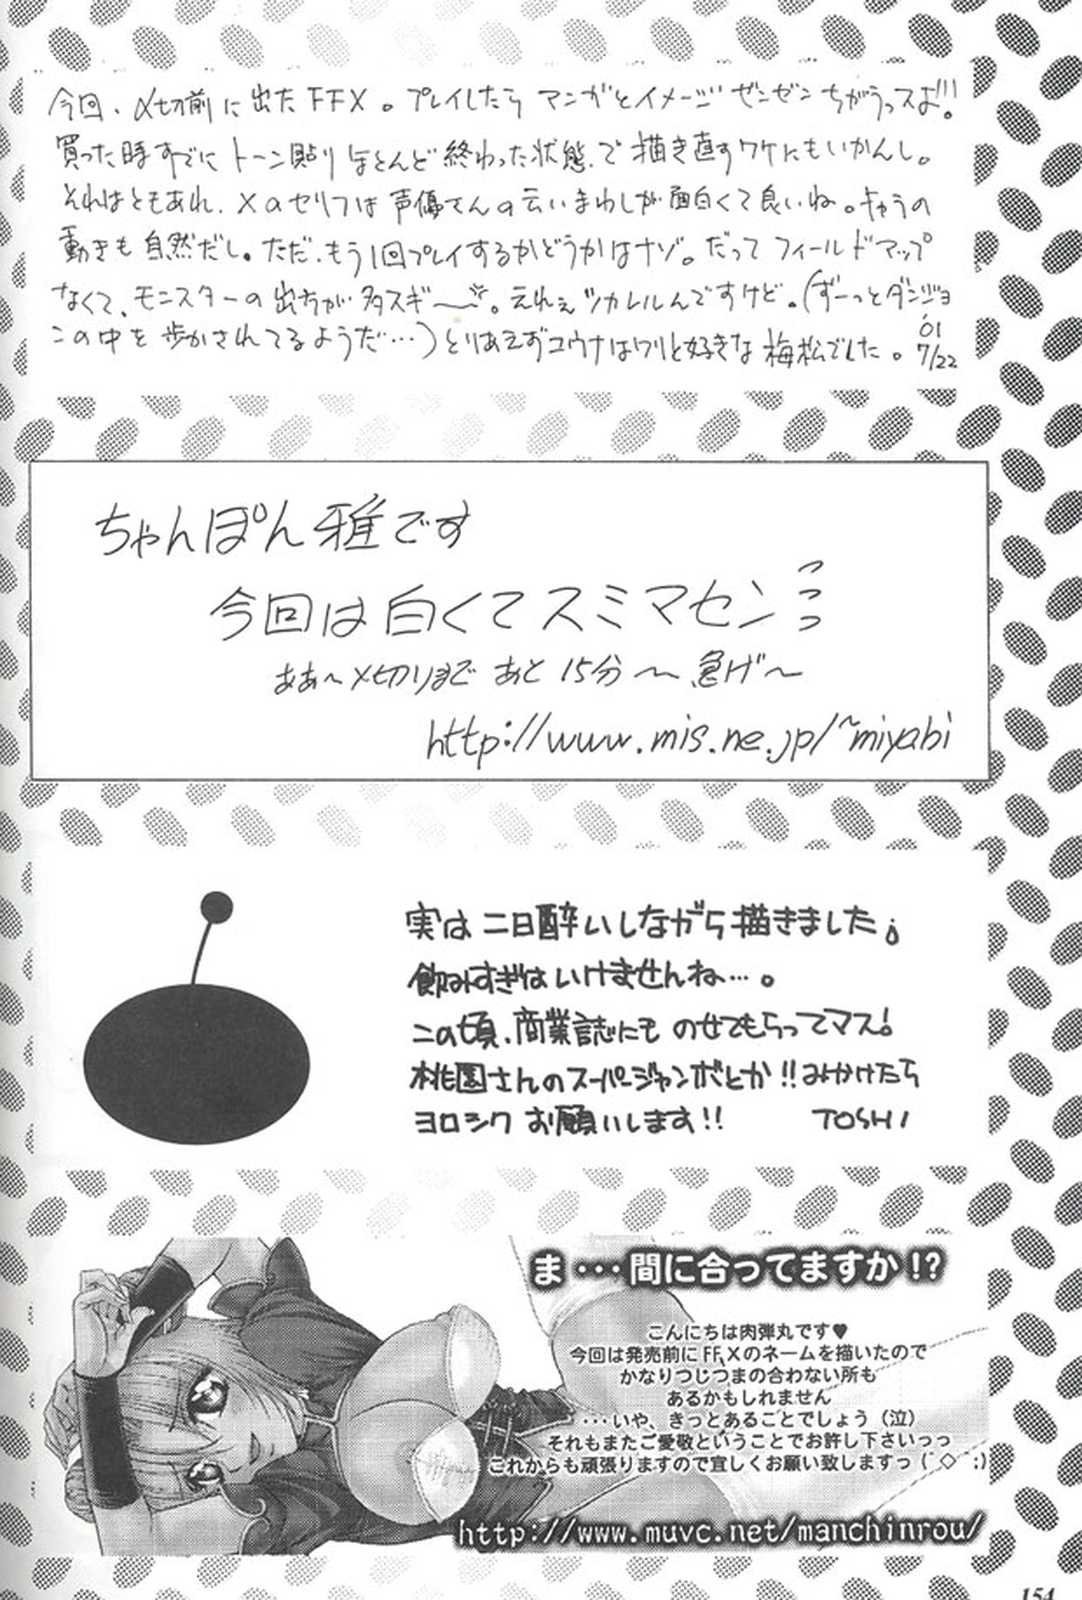 今回、〆切前に出たFFX。プレイしたらマンガとイメージゼンゼンちがうっスよ!!!
買った時すでにトーン貼りほとんど終わった状態で描き直すワケにもいかんし。
それはともあれ、Xのセリフは声優さんの云いまわしが面白くて良いね。キャラの
動きも自然だし。ただ、もう1回プレイするかどうかはナゾ。だってフィールドマップ
なくて、モンスターの出方が多スギ〜。えれぇツカレルんですけど。(ずーっとダンジョ
ンの中を歩かされてるようだ…)とりあえずユウナはワリと好きな梅松でした。
'01
7/22
ちゃんぽん雅です
今回は白くてスミマセンっっっ
ああ〜〆切りまであと15分〜急げ〜
http://www.mis.ne.jp/~miyabi
実は二日酔いしながら描きました。
飲みすぎはいけませんね…。
この頃、商業誌にものせてもらってマス!
桃園さんのスーパージャンボとか!!みかけたら
ヨロシクお願いします!! TOSHI
ま・・・間に合ってますか!?
こんにちは肉弾丸です♥
今回は発売前にFF,Xのネームを描いたので
かなりつじつまの合わない所も
あるかもしれません
・・・いや、きっとあることでしょう(泣)
それもまたご愛敬ということでお許し下さいっっ
これからも頑張りますので宜しくお願い致しますっ(´◇`;)
http://www.muvc.net/manchinrou/
154